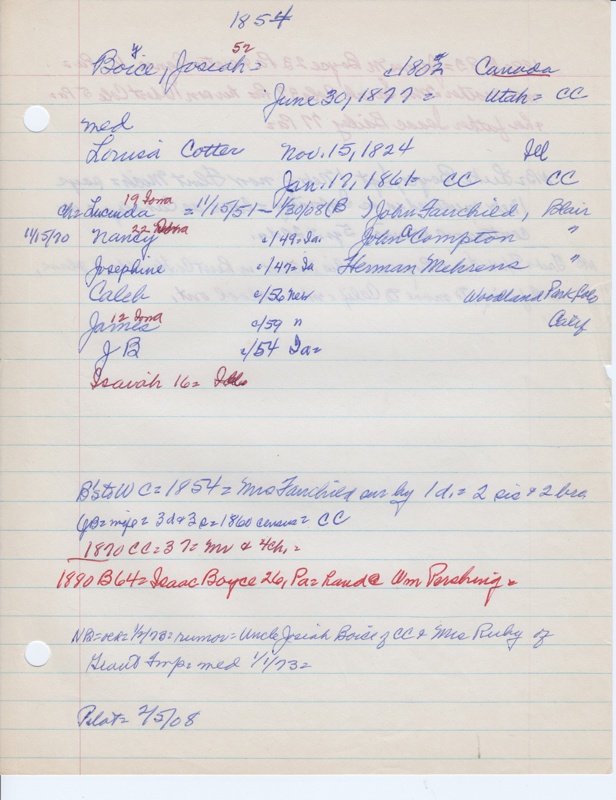 1854
y 52
Boice, Josiah = c1802 Canada
June 30, 1877 = Utah = CC
med
Louisa Cotter Nov. 15, 1824 Ill
Jan. 17, 1861 = CC CC
19 Iowa
ch = Lucinda = 11/15/51 - 1/30/68 (B ) John Fairchild, Blair
11/15/70 Nancy 22 c/49 = Ia. John A Compton "
Josephine c/47 = Ia Herman Mehrens "
Caleb c/56 new Woodland Park, Colo
12 Iowa Calif
James c/59 n
J B c/54 Ia =
Isaiah 16 = Ills
B'sto W C = 1854 = Mrs Fairchild sur by 1 d. = 2 sis & 2 bro
wife = 3 d & 3 s = 1860 census = CC
1870 CC = 37 = Mr & 4 ch. =
1880 B64 = Isaac Boyce 26, Pa = hand @ Wm Pershing =
NB = 1/9/73 = rumor = Uncle Josiah Boice of CC & Mrs Ruby of
Grant Imp = med 1/1/73 =
Pilot = 2/5/08